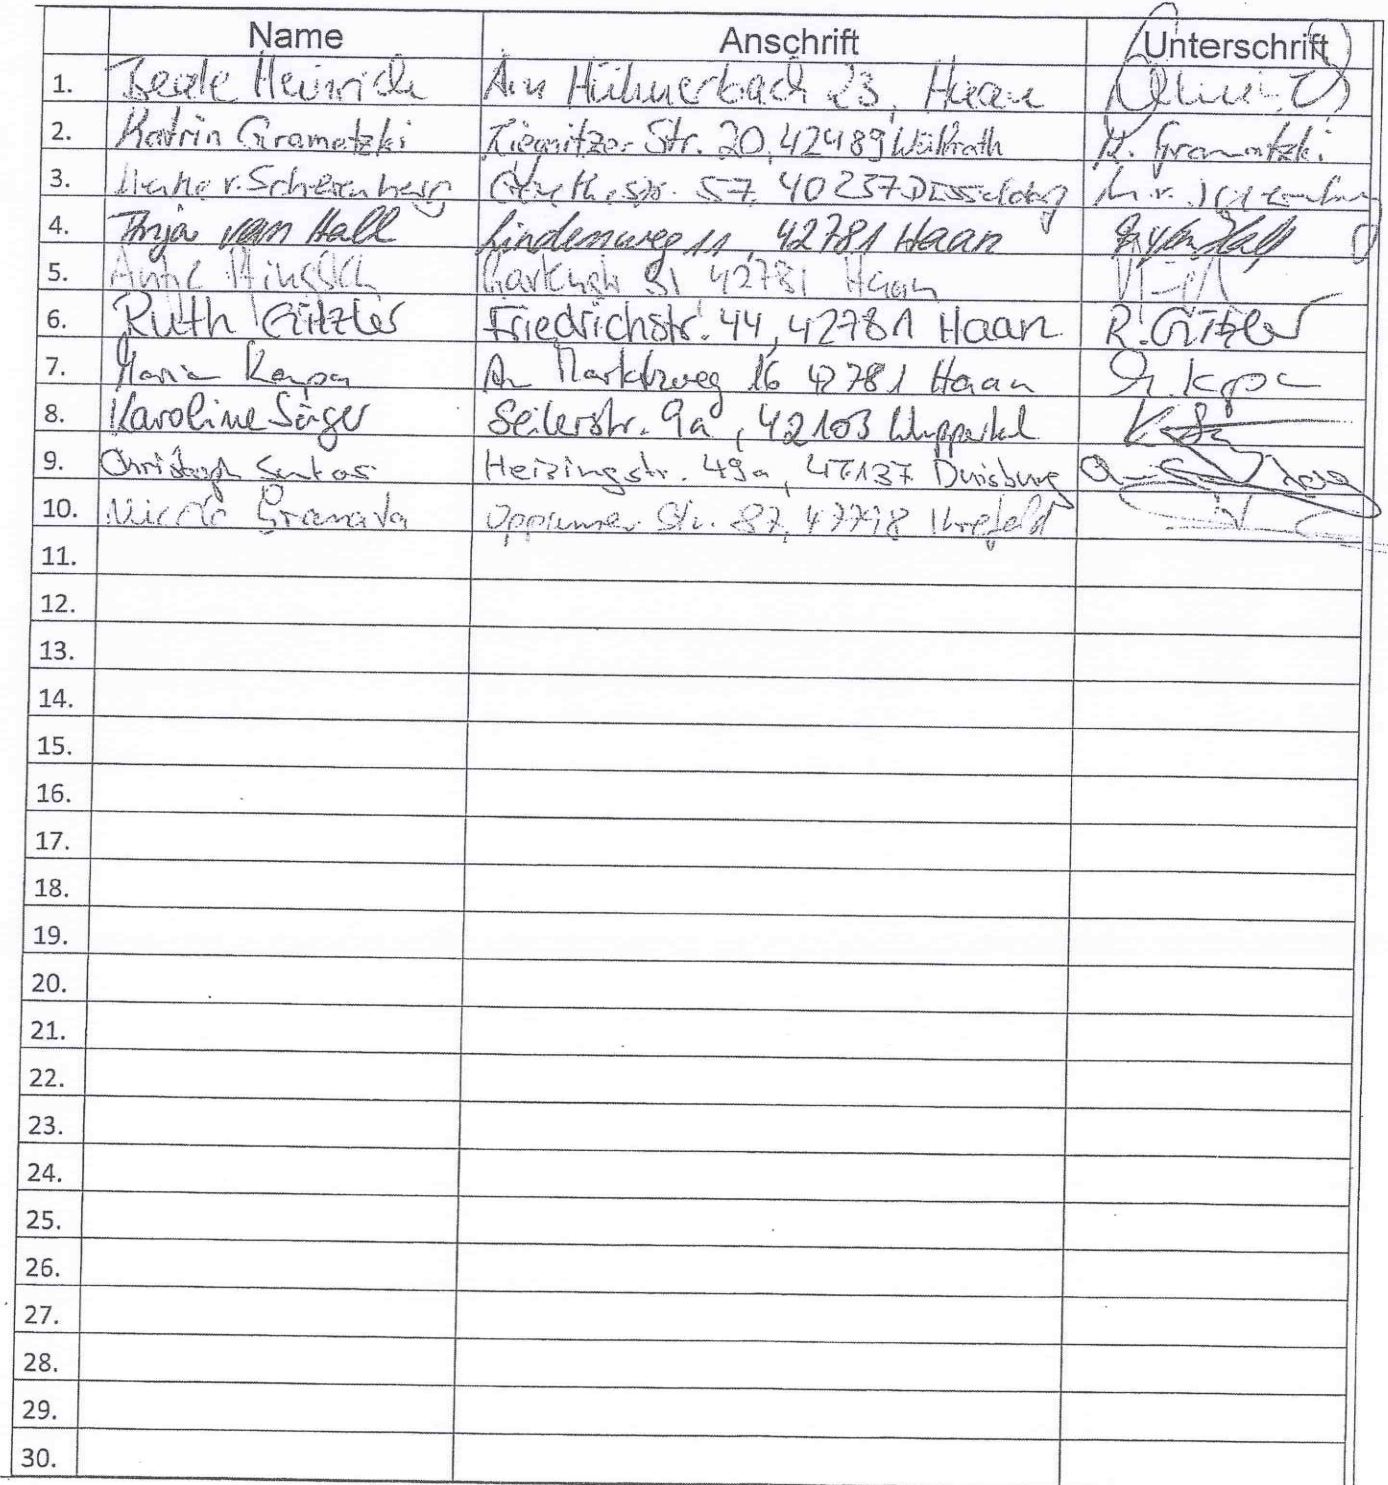 Name Anschrift Unterschrift
1. Beate Heinrich Am Hühnerbach 23, Haan
2. Katrin Gramatzki Liegnitzer Str. 20, 42489 Wülfrath K. Gramatzki
3. v. Schexenberg 57, 40237 Düsseldorf
4. Anja van Hall Lindenweg 11, 42781 Haan
5. Antje 31 42781 Haan
6. Ruth Gitzler Friedrichstr. 44, 42781 Haan R. Gitzler
7. Maria Kempa Am Marktweg 16 42781 Haan
8. Karoline Säger Seilerstr. 9a, 42103 Wuppertal
9. Christoph Santos Heizingstr. 49a, 47137 Duisburg
10. Granata Oppumer Str. 87, 47798 Krefeld
11.
12.
13.
14.
15.
16.
17.
18.
19.
20.
21.
22.
23.
24.
25.
26.
27.
28.
29.
30.